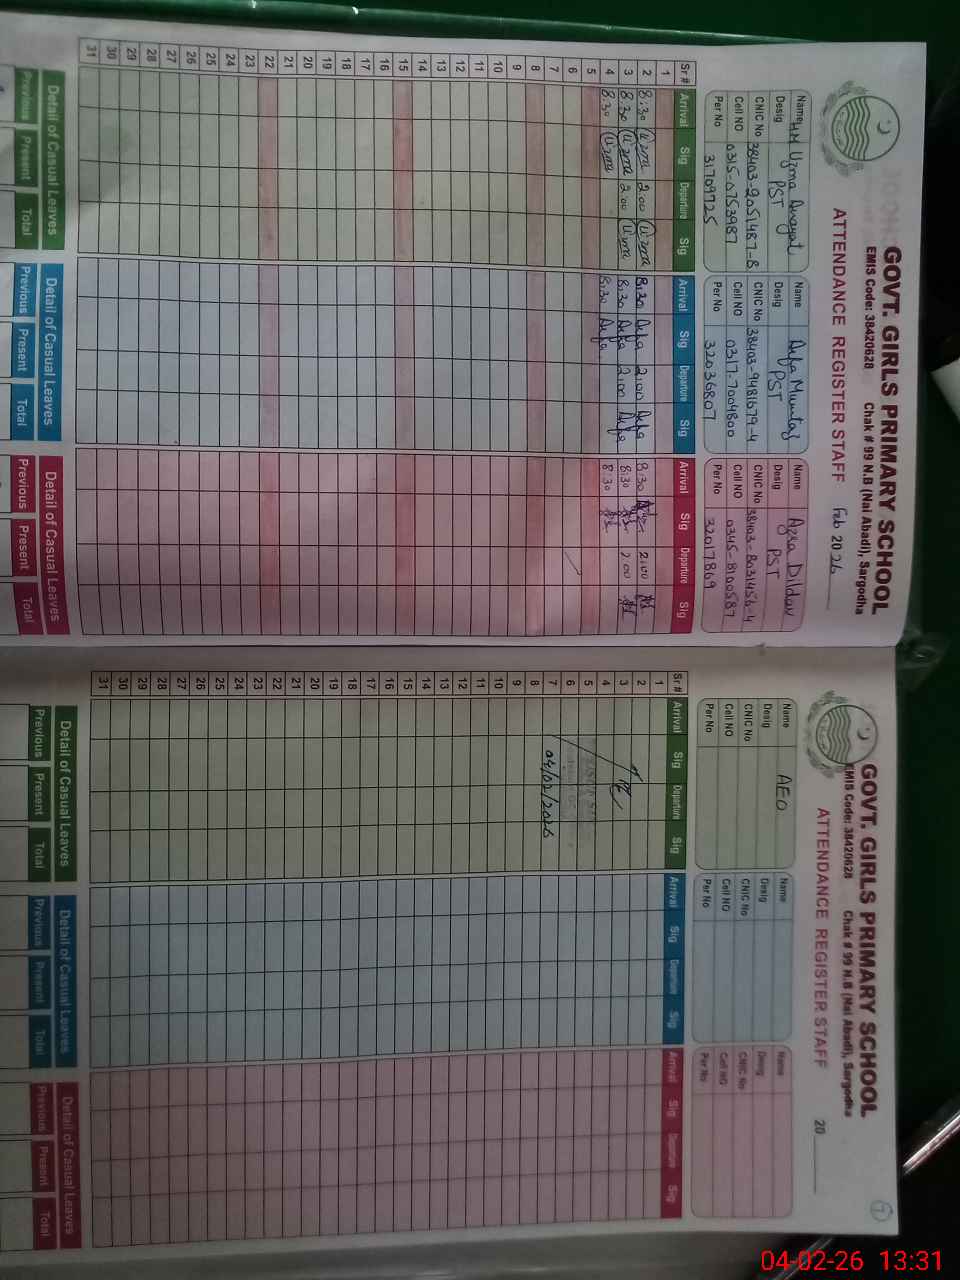 GOVT. GIRLS PRIMARY SCHOOL
EMIS Code: 38420628 Chak # 99 N.B (Nai Abadi), Sargodha
ATTENDANCE REGISTER STAFF Feb 2026
Name HM Uzma Anayat
Desig PST
CNIC No 38403-2051487-8
Cell NO 0345-0753987
Per No 31709725
Name Mumtaz
Desig PST
CNIC No 38403-9481679-4
Cell NO 0317-7004800
Per No 32036807
Name Azra Dildar
Desig PST
CNIC No 38403-8031456-4
Cell NO 0345-8100587
Per No 32017869
Sr # Arrival Sig Departure Sig Arrival Sig Departure Sig Arrival Sig Departure Sig
1
2 8:30 Uzma 2.00 Uzma 8:30 2:00 8:30 2:00
3 8:30 Uzma 2.00 Uzma 8:30 2:00 8:30 2:00
4 8:30 Uzma 8:30 8:30
5
6
7
8
9
10
11
12
13
14
15
16
17
18
19
20
21
22
23
24
25
26
27
28
29
30
31
Detail of Casual Leaves Detail of Casual Leaves Detail of Casual Leaves
Previous Present Total Previous Present Total Previous Present Total
7
GOVT. GIRLS PRIMARY SCHOOL
EMIS Code: 38420628 Chak # 99 N.B (Nai Abadi), Sargodha
ATTENDANCE REGISTER STAFF 20
Name AEO
Desig
CNIC No
Cell NO
Per No
Name
Desig
CNIC No
Cell NO
Per No
Name
Desig
CNIC No
Cell NO
Per No
Sr # Arrival Sig Departure Sig Arrival Sig Departure Sig Arrival Sig Departure Sig
1
2
3
4
5
6
7 04/02/2026
8
9
10
11
12
13
14
15
16
17
18
19
20
21
22
23
24
25
26
27
28
29
30
31
Detail of Casual Leaves Detail of Casual Leaves Detail of Casual Leaves
Previous Present Total Previous Present Total Previous Present Total
04-02-26 13:31